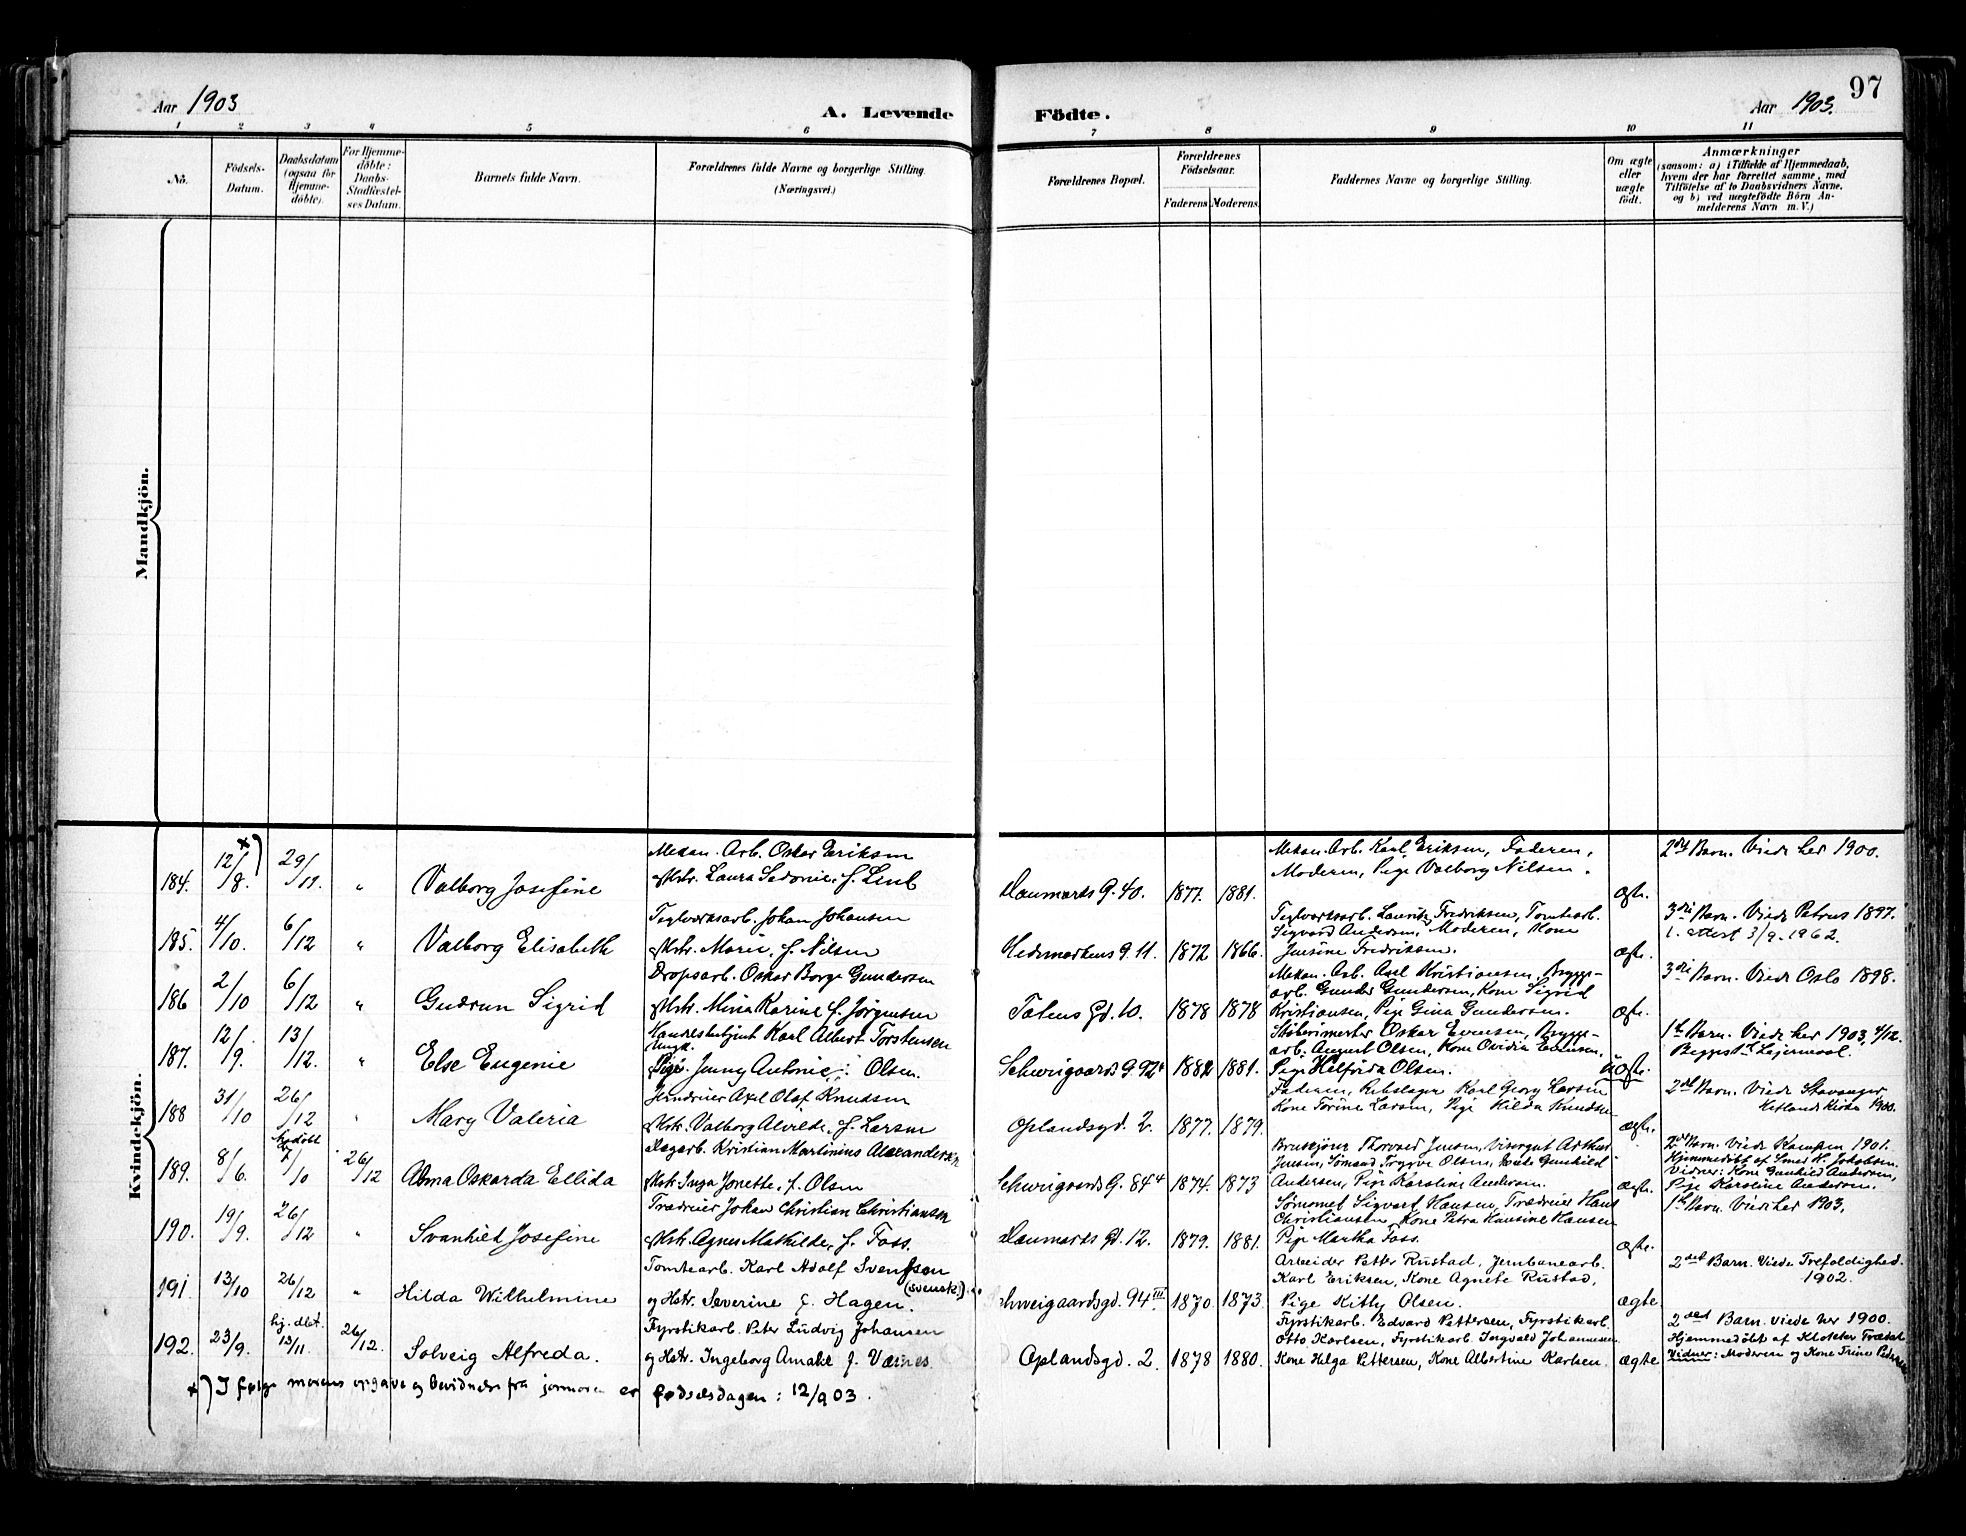 97
Aar 1903
A. Levende
Födte.
Aar 1903.
1 2 3 4 5 6 7 8 9 10 11
No.
Födsels-
Datum.
Daabsdatum
(ogsaa for
Hjemme-
döbte).
For Hjemme-
döbte:
Daabs-
Stadfæstel-
ses Datum.
Barnets fulde Navn.
Forældrenes fulde Navne og borgerlige Stilling.
(Næringsvei.)
Forældrenes Bopæl.
Forældrenes
Födselsaar.
Faderens Moderens
Faddernes Navne og borgerlige Stilling.
Om ægte
eller
uægte
födt.
Anmærkninger
(saasom: a) i Tilfælde af Hjemmedaab,
hvem der har forrettet samme, med
Tilföielse af to Daabsvidners Navne,
og b) ved uægtefödte Börn An-
melderens Navn m. V.)
Mandkjön.
Kvindekjön.
184. 12/8. x) 29/11. " Valborg Josefine
Mekan. Arb. Oskar Eriksen
Laura Sedonie, f. Lens
Danmarks G. 40. 1877. 1881.
Mekan. Arb. Karl Eriksen, Faderen,
Moderen, Pige Valborg Nilsen.
ægte.
2det Barn. Viede her 1900.
185. 4/10. 6/12 " Valborg Elisabeth
Teglverksarb. Johan Johansen
Hstr. Marie, f. Nilsen
Hedemarkens G. 11. 1872 1866.
Teglverksarb. Lauritz Fredriksen, Tomtearb.
Sigvard Andersen, Moderen, Kone
Jensine Fredriksen.
ægte.
3die Barn. Viede Petrus 1897.
1. attest 3/9. 1962.
186 2/10 6/12 " Gudrun Sigrid
Dropsarb. Oskar Borge Gundersen
Hstr. Mina Karine f. Jørgensen
Totens Gd. 10. 1878 1878
Mekan. Arb. Axel Kristiansen, Brygge-
arb. Gunder Gundersen, Kone Sigrid
Kristiansen, Pige Gina Gundersen.
ægte.
3die Barn. Viede Oslo 1898.
187. 12/9. 13/12. " Else Eugenie
Handelsbetjent Karl Albert Torstensen
Ungk.
Pige Jenny Antonie Olsen.
Schweigaards G. 92 1882 1881.
Støberimester Oskar Evensen, Brygge-
arb. August Olsen, Kone Ovidia Evensen,
Pige Helfrida Olsen.
uægte.
1ste Barn. Viede her 1903, 4/12.
Begges 1ste Lejermaal.
188 31/10 26/12 " Mary Valeria
Jerndreier Axel Olaf Knudsen
Hstr. Valborg Alvilde, f. Larsen
Oplandsgd. 2. 1877. 1879.
Faderen, Rebslager Karl Georg Larsen
Kone Torine Larsen, Pige Hilda Knudsen
ægte.
2det Barn. Viede Stavanger
Hetlands Kirke 1900.
189. 8/6. hjdöbt 7/10 26/12 Alma Oskarda Ellida
Dagarb. Kristian Martinius Alexandersen
Hstr. Inga Jonette, f. Olsen
Schweigaards G. 84 4 1874. 1873
Bruskjører Thorvald Jensen, Visergut Arthur
Jensen, Sømand Trygve Olsen, Kone Gunhild
Andersen, Pige Karoline Andersen.
ægte.
2det Barn. Viede Kampen 1901.
Hjemmedöbt af Smed K. Jakobsen.
Vidner: Kone Gunhild Andersen,
Pige Karoline Andersen.
190. 19/9. 26/12 " Svanhild Josefine
Trædreier Johan Christian Christiansen
Hstr. Agnes Mathilde, f. Foss.
Danmarks Gd. 12. 1879. 1881.
Sigvart Hansen, Trædreier Hans
Christiansen, Kone Petra Hansine Hansen
Pige Martha Foss.
ægte.
1ste Barn. Viede her 1903.
191. 13/10 26/12 " Hilda Wilhelmine
Tomtearb. Karl Adolf Svensson
(svensk)
og Hstr. Severine f. Hagen.
Schweigaardsgd. 94 III 1870. 1873.
Arbeider Petter Rustad, Jernbanearb.
Karl Eriksen, Kone Agnete Rustad,
Pige Kitty Olsen.
ægte
2det Barn. Viede Trefoldighed.
1902.
192. 23/9. hj. dbt. 13/11. 26/12. Solveig Alfreda.
Fyrstikarb. Peter Ludvig Johansen
og Hstr. Ingeborg Amalie f. Værnes.
Oplandsgd. 2. 1878 1880.
Fyrstikarb. Edvard Pettersen, Fyrstikarb.
Otto Karlsen, Fyrstikarb. Ingvald Johannesen
Kone Helga Pettersen, Kone Albertine Karlsen.
ægte
2det Barn. viede her 1900.
Hjemmedöbt af Klokker Trædal
Vidner: Moderen og Kone Trine Pedersen
x) I følge morens opgave og bevidnelse fra jormoren er fødselsdagen: 12/9 03.